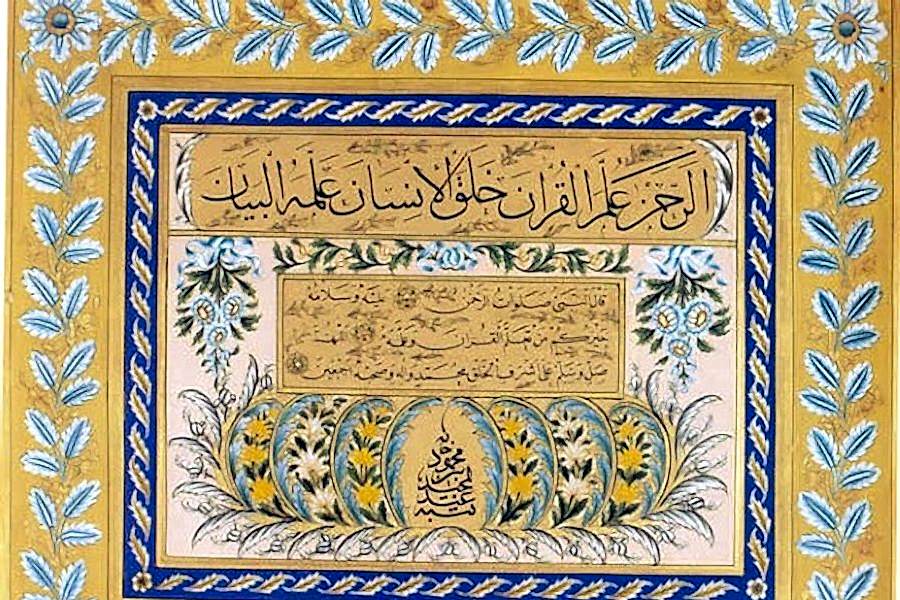 الرحمن علم القرآن خلق الإنسان علمه البيان
قال النبي صلوات الرحمن عليه وسلامه
خيركم من تعلم القرآن وعلمه اللهم
صل وسلم على اشرف الخلق محمد وآله وصحبه اجمعين
كتبه عبد المجيد محمود